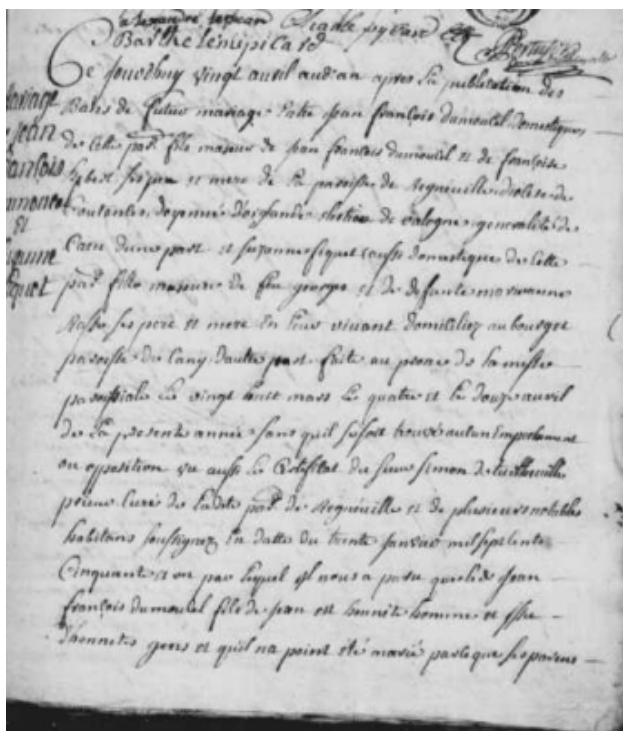 alexandre
Barthelemi picard
Ce jourdhuy vingt avril audian apres la publication des
Bans de futur mariage Entre jean françois dumoutel domestique
de cette par. fils majeur de jean françois dumoutel et de françoise
ses pere et mere de la paroisse de diocese de
Coutances, doyenné d'orglande election de valogne generalité de
Caen dune part et suzanne fiquet aussi domestique de cette
par. fille majeure de feu georges et de defunte marianne
ses pere et mere En leur vivant domiciliez au bourg et
paroisse de Cany daultre part faite au prone de la messe
paroissiale Le vingt huit mars Le quatre et le douze avril
de La presente année sans quil se soit trouvé aucun Empechement
ou opposition vu aussi Le Certificat du sieur simon de
prieur Curé de Ladite par. de et de plusieurs notables
habitans soussignez En datte du trente janvier mil sept cents
Cinquante et un par lequel il nous a paru que le d. jean
françois dumoutel fils de jean est honnete homme et issu
dhonnetes gens et quil na point été marié parce que ses parens
mariage
jean
françois
Et
suzanne
fiquet